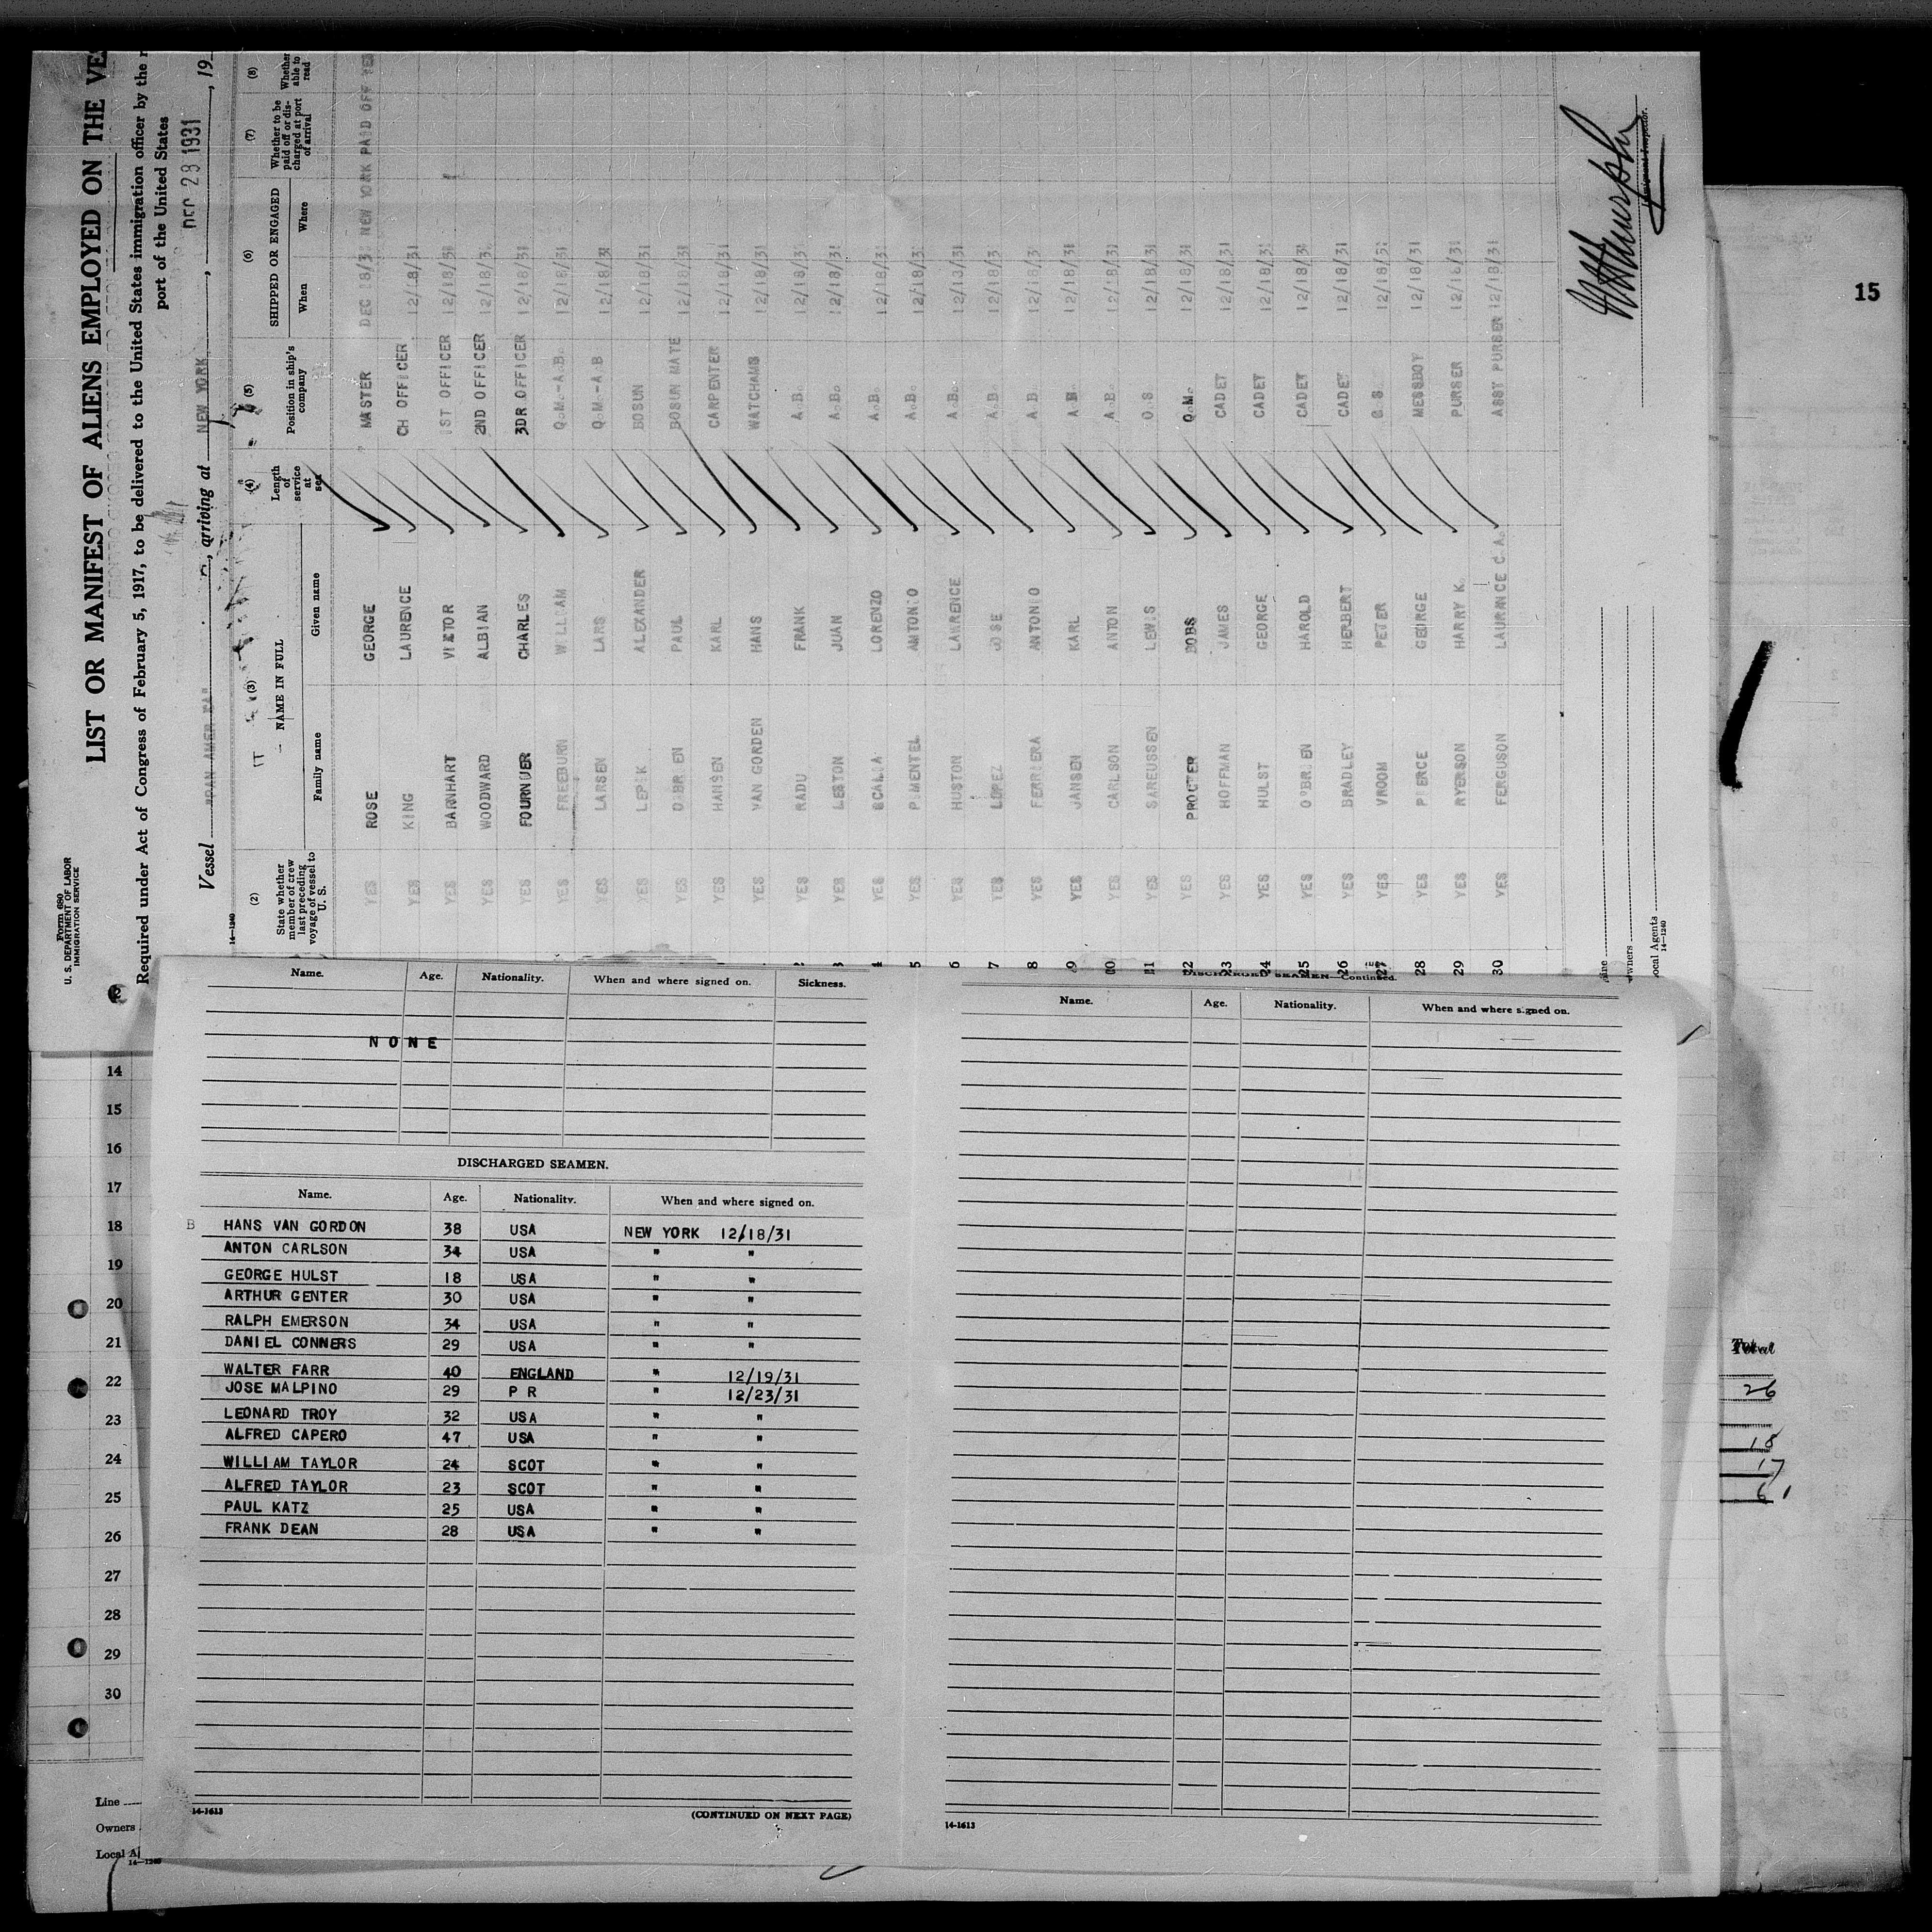 Form 680
U. S. DEPARTMENT OF LABOR
IMMIGRATION SERVICE
LIST OR MANIFEST OF ALIENS EMPLOYED ON THE VE
Required under Act of Congress of February 5, 1917, to be delivered to the United States immigration officer by the
port of the United States
Vessel , arriving at NEW YORK , DEC 29 1931 , 19
14-1240
(2) (3) (4) (5) (6) (7) (8)
State whether member of crew last preceding voyage of vessel to U. S.
NAME IN FULL
Family name Given name
Length of service at sea
Position in ship's company
SHIPPED OR ENGAGED
When Where
Whether to be paid off or discharged at port of arrival
Whether able to read
YES ROSE GEORGE MASTER DEC 18/31 NEW YORK PAID OFF YES
YES KING LAURENCE CH OFFICER 12/18/31
YES BARNHART VICTOR 1ST OFFICER 12/18/31
YES WOODWARD ALBIAN 2ND OFFICER 12/18/31
YES FOURNIER CHARLES 3DR OFFICER 12/18/31
YES FREEBURN WILLIAM Q.M.-A.B. 12/18/31
YES LARSEN LARS Q.M.-A.B 12/18/31
YES LEPIK ALEXANDER BOSUN 12/18/31
YES OBRIEN PAUL BOSUN MATE 12/18/31
YES HANSEN KARL CARPENTER 12/18/31
YES VAN GORDEN HANS WATCHAMB 12/18/31
2 YES RADU FRANK A.B. 12/18/31
3 YES LESTON JUAN A.B. 12/18/31
4 YES SCALIA LORENZO A.B. 12/18/31
5 YES PIMENTEL ANTONIO A.B. 12/18/31
6 YES HUSTON LARRENCE A.B. 12/18/31
7 YES LOPEZ JOSE A.B. 12/18/3
8 YES FERRIERA ANTONIO A B 12/18/3
9 YES JANSEN KARL A.B. 12/18/31
10 YES CARLSON ANTON A.B. 12/18/31
11 YES SAREUSSEN LEWIS O.S 12/18/31
22 YES PROCTER BOBS Q.M. 12/18/31
23 YES HOFFMAN JAMES CADET 12/18/31
24 YES HULST GEORGE CADET 12/18/31
25 YES O'BRIEN HAROLD CADET 12/18/31
26 YES BRADLEY HERBERT CADET 12/18/31
27 YES VROOM PETER 12/18/31
28 YES PIERCE GEORGE MESSBOY 12/18/31
29 YES RYERSON HARRY K. PURSER 12/18/31
30 YES FERGUSON LAURANCE C A. ASST PURSER 12/18/31
Line
Owners
Local Agents
14-1240
Immigrant Inspector.
15
Name. Age. Nationality. When and where signed on. Sickness.
NONE
DISCHARGED SEAMEN.
Name. Age. Nationality. When and where signed on.
B HANS VAN GORDON 38 USA NEW YORK 12/18/31
ANTON CARLSON 34 USA " "
GEORGE HULST 18 USA " "
ARTHUR GENTER 30 USA " "
RALPH EMERSON 34 USA " "
DANIEL CONNERS 29 USA " "
WALTER FARR 40 ENGLAND " 12/19/31
JOSE MALPINO 29 P R " 12/23/31
LEONARD TROY 32 USA " "
ALFRED CAPERO 47 USA " "
WILLIAM TAYLOR 24 SCOT " "
ALFRED TAYLOR 23 SCOT " "
PAUL KATZ 25 USA " "
FRANK DEAN 28 USA " "
14-1613
(CONTINUED ON NEXT PAGE)
DISCHARGED SEAMEN—Continued.
Name. Age. Nationality. When and where signed on.
14-1613
14
15
16
17
18
19
20
21
22
23
24
25
26
27
28
29
30
Line
Owners
Local A
14-1240
Total
26
18
17
61